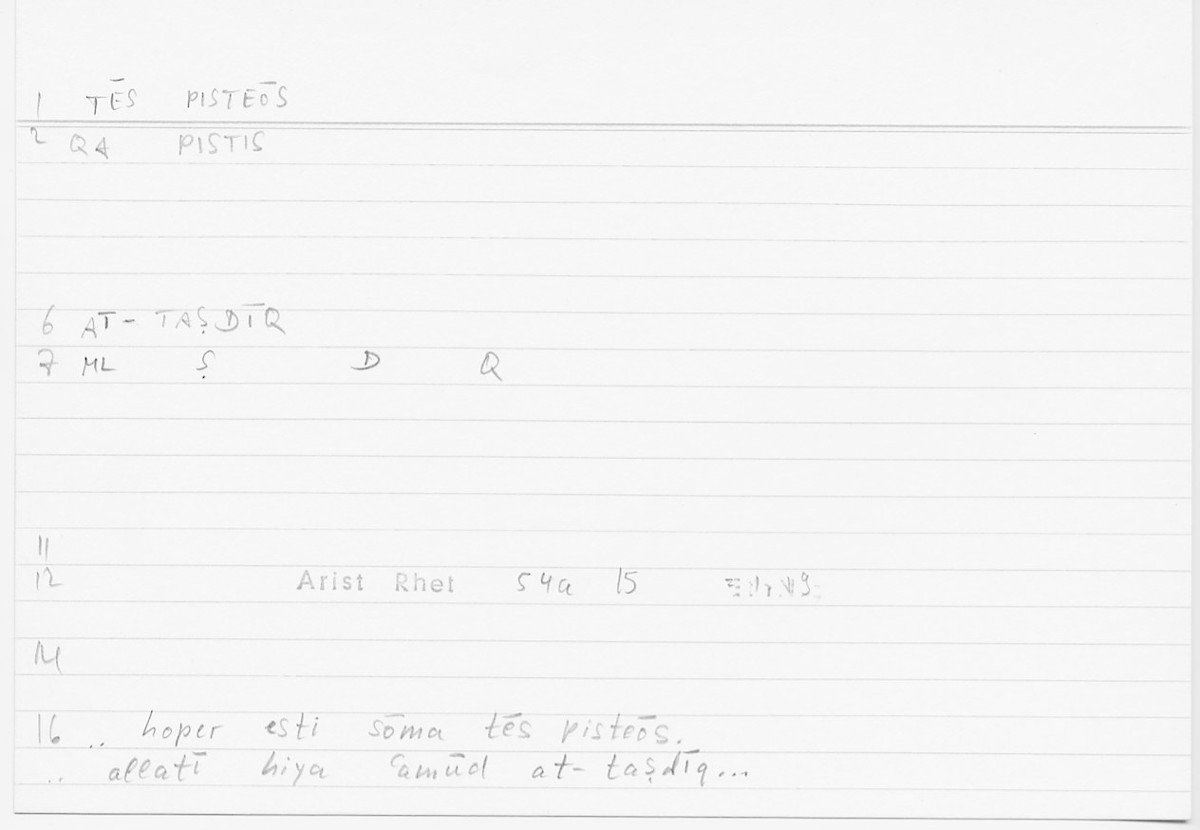 1 TĒS PISTEŌS
2 QA PISTIS
6 AT- TAṢDĪQ
7 ML Ṣ D Q
11
12 Arist Rhet 54a 15
14
16 .. hoper esti sōma tēs pisteōs.
.. allatī hiya ʿamūd at- taṣdīq...